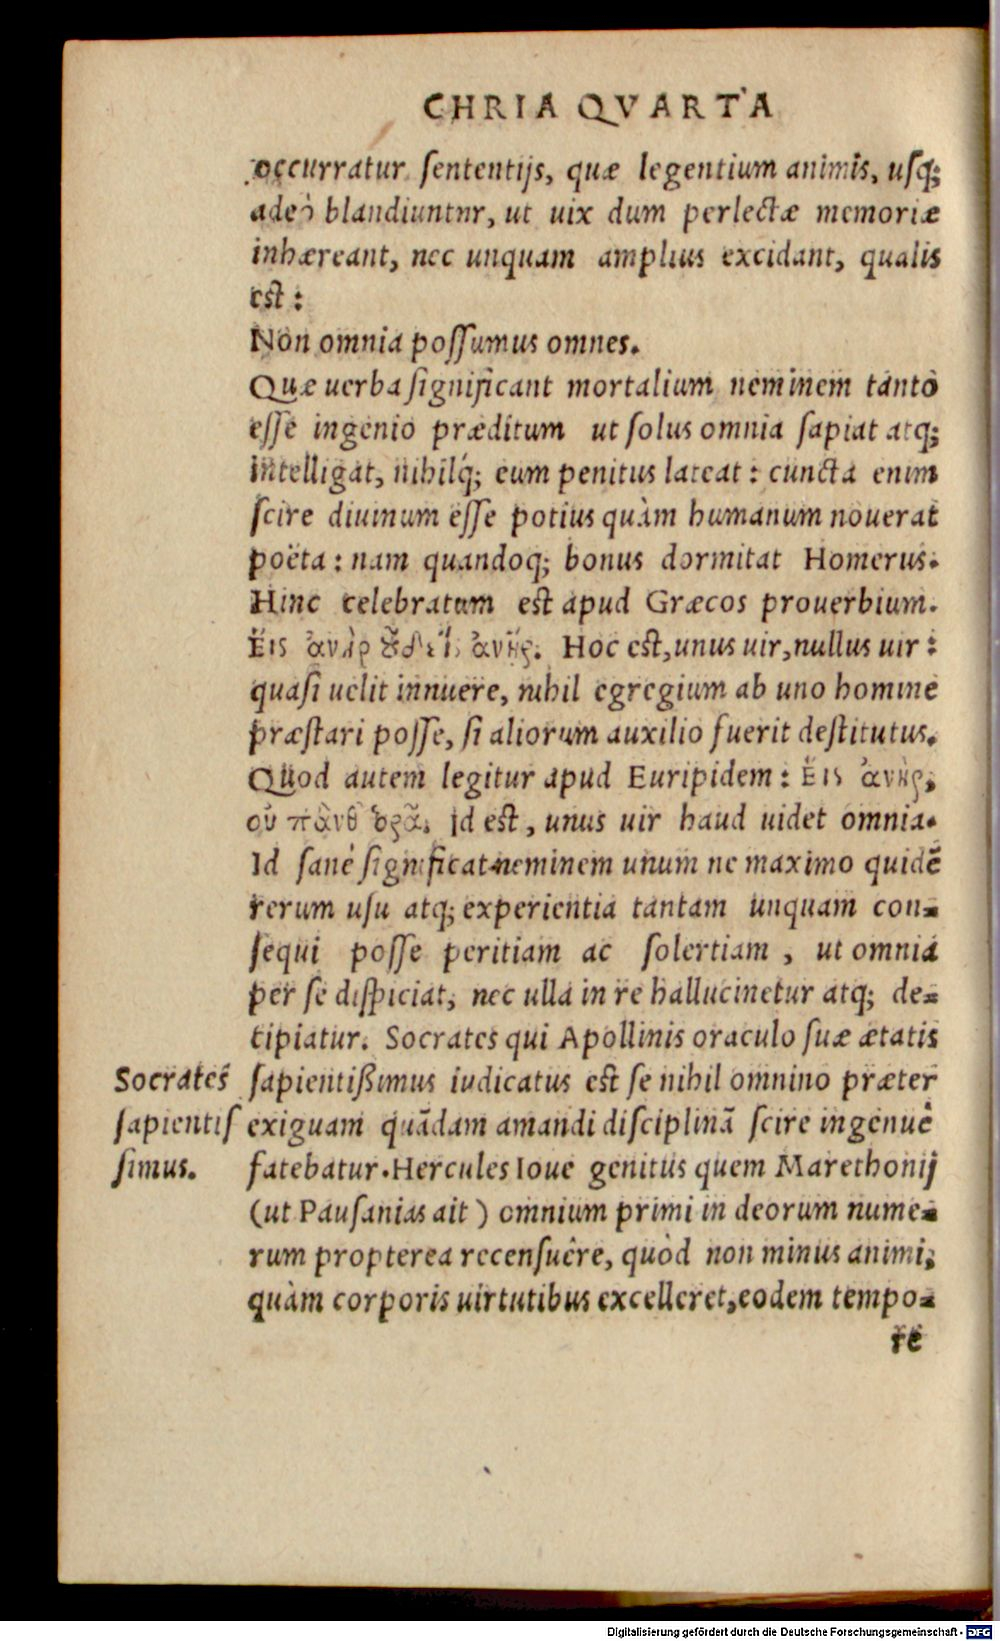 CHRIA QVARTA
occurratur sententijs, quæ legentium animis, usq;
adeò blandiuntur, ut uix dum perlectæ memoriæ
inhæreant, nec unquam amplius excidant, qualis
est:
Non omnia possumus omnes.
Quæ uerba significant mortalium neminem tantò
esse ingenio præditum ut solus omnia sapiat atq;
intelligat, nihilq́; eum penitus lateat: cuncta enim
scire diuinum esse potius quàm humanum nouerat
poëta: nam quandoq; bonus dormitat Homerus.
Hinc celebratum est apud Græcos prouerbium.
Εἷς ἀνὴρ ἀνήρ. Hoc est, unus uir, nullus uir:
quasi uelit innuere, nihil egregium ab uno homine
præstari posse, si aliorum auxilio fuerit destitutus.
Quod autem legitur apud Euripidem: Εἷς ἀνὴρ,
οὐ πάνθ' ὁρᾷ. Id est, unus uir haud uidet omnia.
Id sanè significat neminem unum ne maximo quidē
rerum usu atq; experientia tantam unquam con-
sequi posse peritiam ac solertiam, ut omnia
per se dispiciat, nec ulla in re hallucinetur atq; de-
tipiatur. Socrates qui Apollinis oraculo suæ ætatis
Socrates sapientißimus iudicatus est se nihil omnino præter
sapientis exiguam quādam amandi disciplinā scire ingenuè
simus. fatebatur. Hercules Ioue genitus quem Marethonij
(ut Pausanias ait) omnium primi in deorum nume-
rum propterea recensuêre, quòd non minus animi,
quàm corporis uirtutibus excelleret, eodem tempo-
re
Digitalisierung gefördert durch die Deutsche Forschungsgemeinschaft - DFG